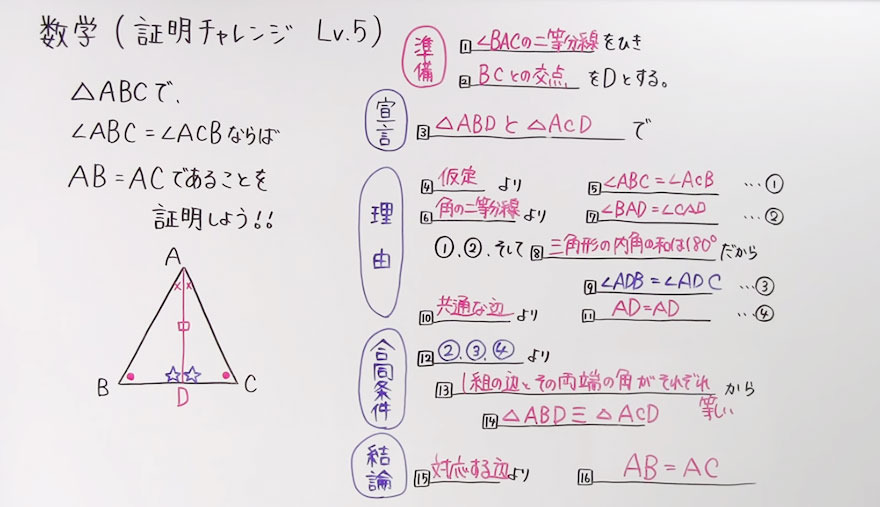 数学（証明チャレンジ Lv.5）
△ABCで、
∠ABC=∠ACBならば
AB=ACであることを
証明しよう!!
A
B
C
D
準備
1 ∠BACの二等分線をひき
2 BCとの交点 をDとする。
宣言
3 △ABDと△ACD で
理由
4 仮定 より 5 ∠ABC=∠ACB …①
6 角の二等分線より 7 ∠BAD=∠CAD …②
①、②、そして 8 三角形の内角の和は180°だから
9 ∠ADB=∠ADC …③
10 共通な辺 より 11 AD=AD …④
合同条件
12 ②、③、④ より
13 1組の辺とその両端の角がそれぞれ等しい から
14 △ABD≡△ACD
結論
15 対応する辺より 16 AB=AC